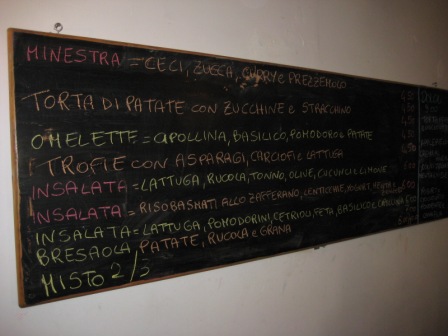 MINESTRA = CECI, ZUCCA, CURRY e PREZZEMOLO
TORTA DI PATATE CON ZUCCHINE e STRACCHINO
OMELETTE = CIPOLLINA, BASILICO, POMODORO e PATATE
TROFIE CON ASPARAGI, CARCIOFI e LATTUGA
INSALATA = LATTUGA, RUCOLA, TONNO, OLIVE, CUCUNCI e LIMONE
INSALATA = RISO BASMATI ALLO ZAFFERANO, LENTICCHIE, YOGURT, MENTA
INSALATA = LATTUGA, POMODORINI, CETRIOLI, FETA, BASILICO e
BRESAOLA PATATE, RUCOLA e GRANA
MISTO 2/3